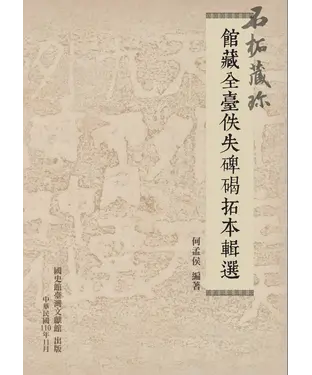 石拓藏珍
館藏全臺佚失碑碣拓本輯選
何孟侯 編著
國史館臺灣文獻館 出版
中華民國110年11月